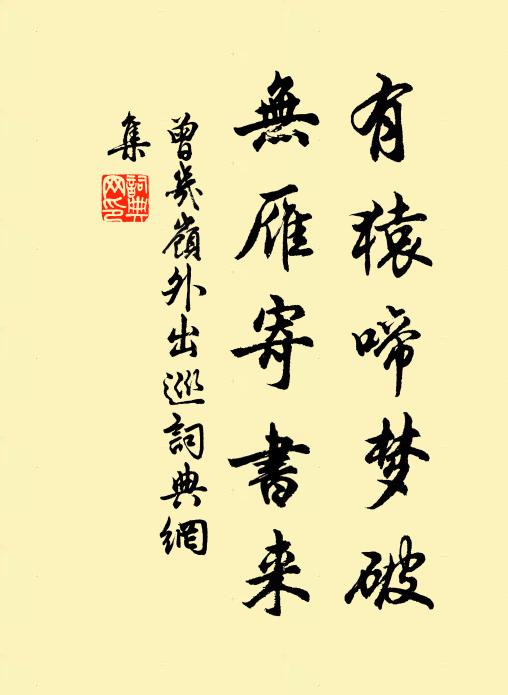 有猿啼梦破
無雁寄書来
曾幾嶺外出巡詞典網
集
詞典
网印